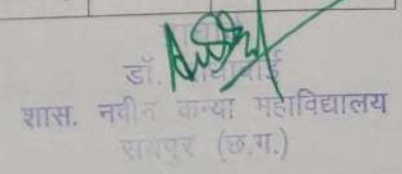 डॉ.
शास. नवीन कन्या महाविद्यालय
रायपुर (छ.ग.)